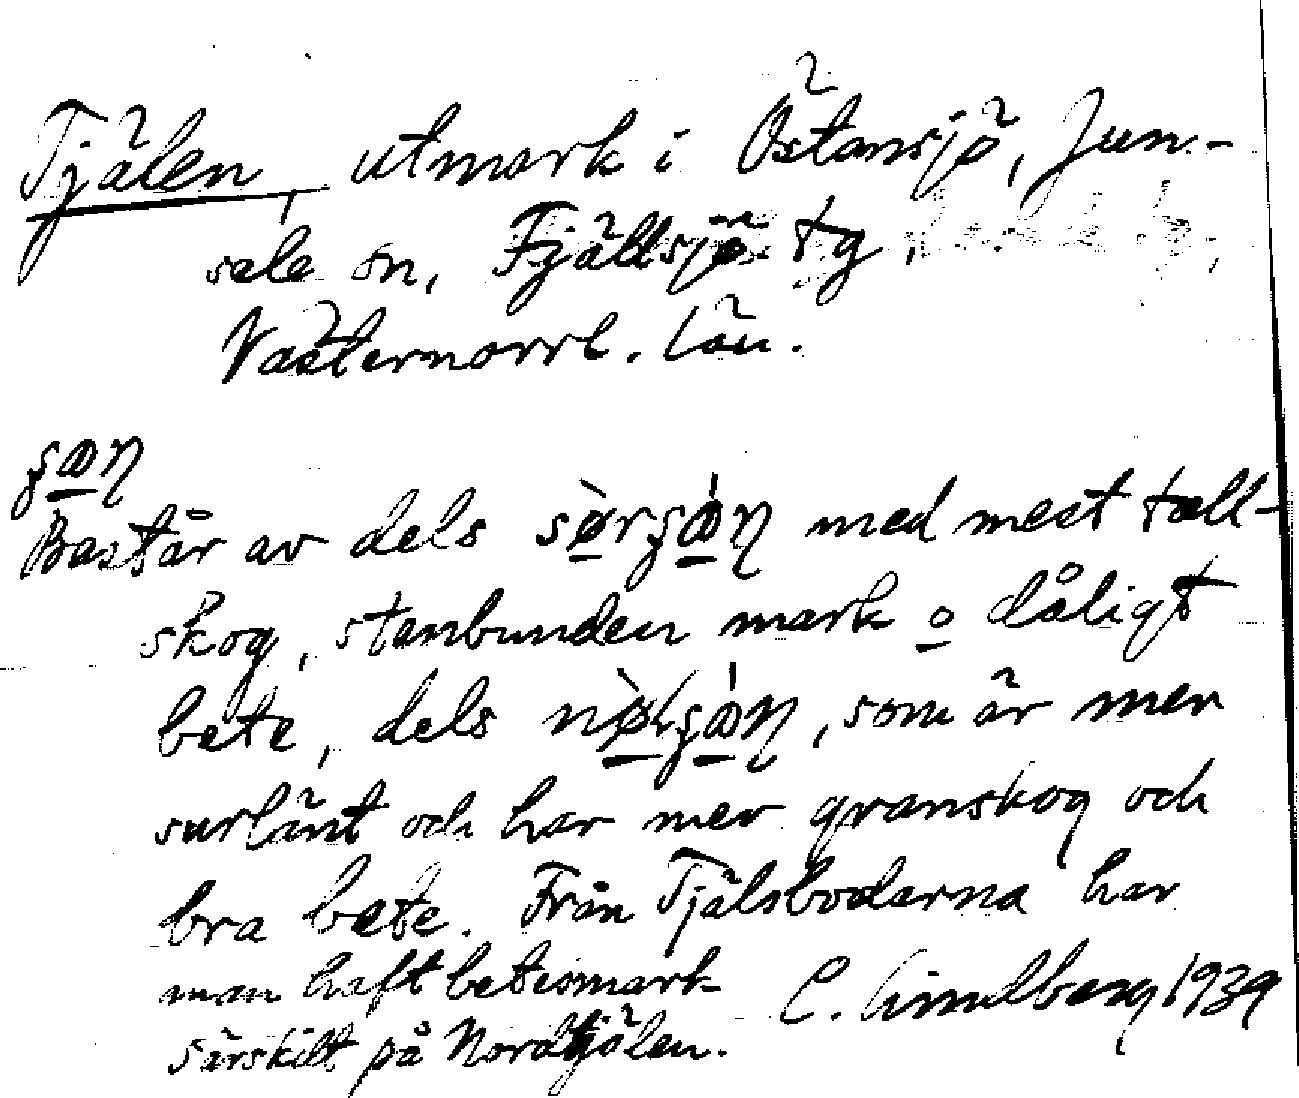 Tjälen, utmark i Östansjö, Jun-
sele sn, Fjällsjö tg,
Västernorrl. län.
Består av dels med mest tall-
skog, stenbunden mark o dåligt
bete, dels , som är mer
surlänt och har mer granskog och
bra bete. Från Tjälsbodarna har
man haft betesmark
särskilt på Nordtjälen.
C. Lindberg 1939